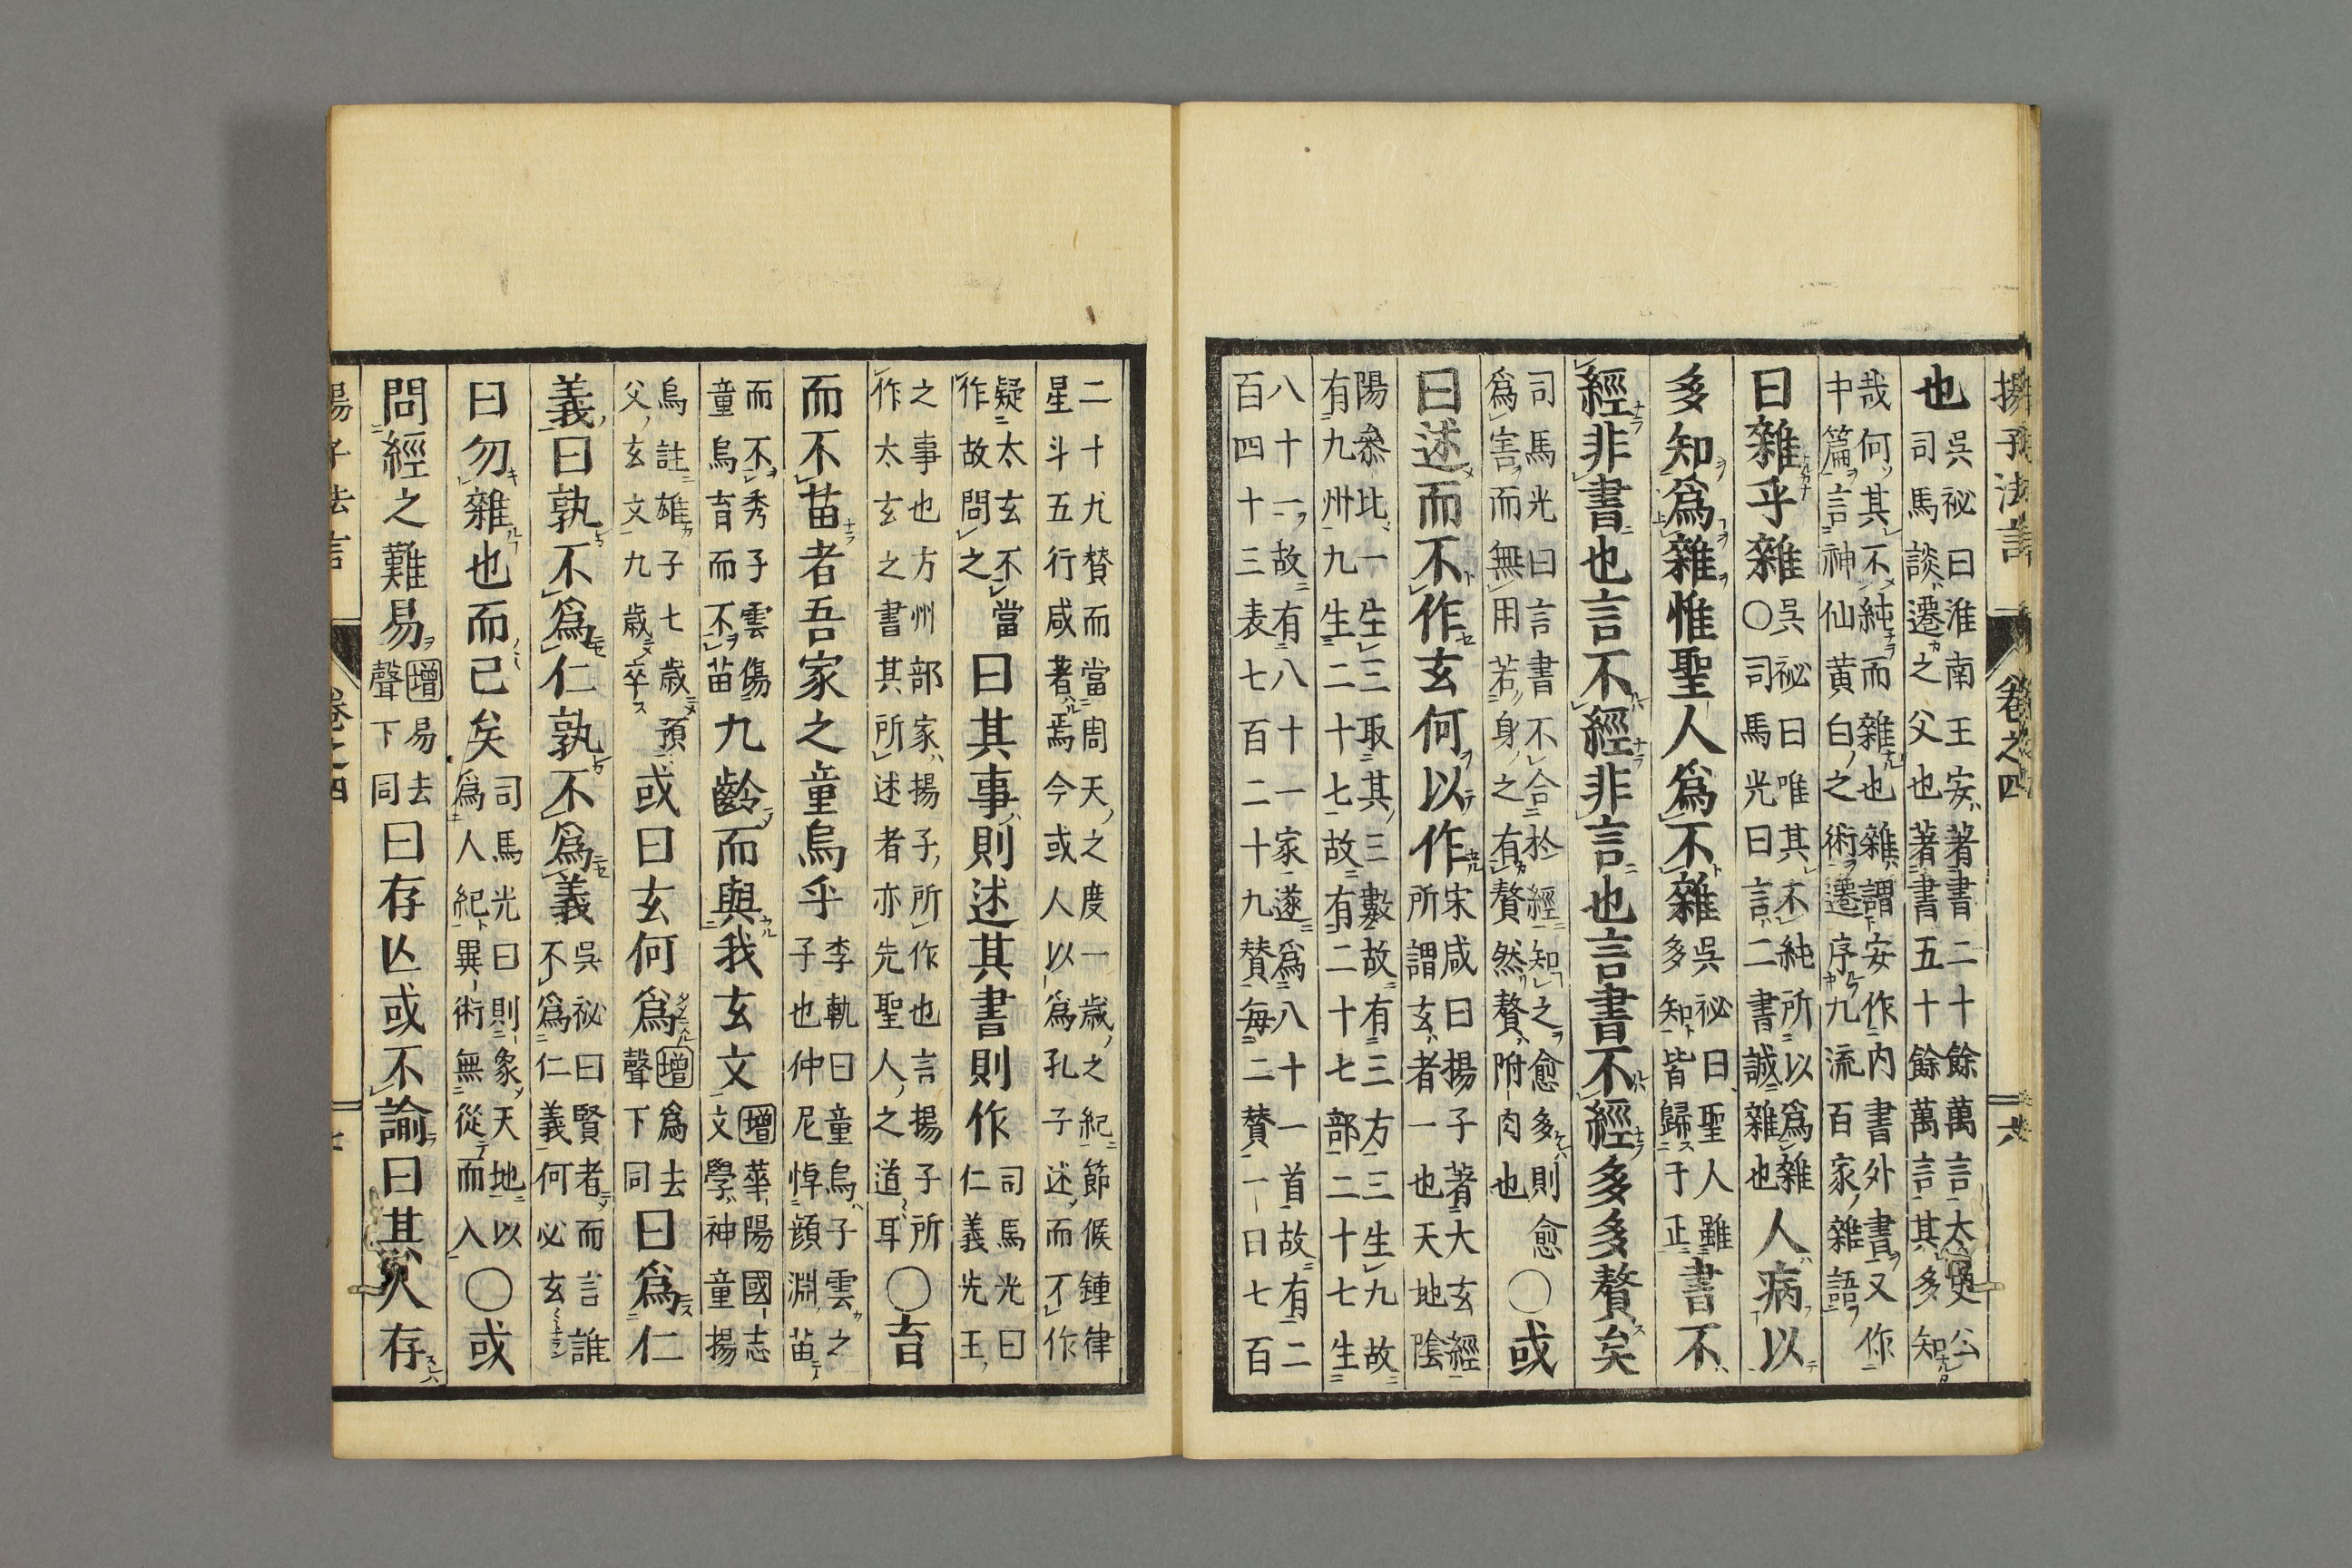 揚子法言 卷之四 六
也 吳祕曰淮南王安著書二十餘萬言太史公
司馬談遷之父也著書五十餘萬言其多知
哉何其不純而雜也雜謂安作內書外書又作
中篇言神仙黃白之術遷序九流百家雜語
曰雜乎雜 吳祕曰唯其不純所以爲雜
○司馬光曰言二書誠雜也 人病以
多知爲雜惟聖人爲不雜 吳祕曰聖人雖
多知皆歸于正 書不
經非書也言不經非言也言書不經多多贅矣
司馬光曰言書不合於經知之愈多則愈
爲害而無用若身之有贅然贅附肉也 ○或
曰述而不作玄何以作 宋咸曰揚子著大玄經
所謂玄者一也天地陰
陽叅比一生三取其三數故有三方三生九故
有九州九生二十七故有二十七部二十七生
八十一故有八十一家遂爲八十一首故有二
百四十三表七百二十九贊每二贊一日七百
二十九贊而當周天之度一歲之紀節候鍾律
星斗五行咸著焉今或人以爲孔子述而不作
疑太玄不當
作故問之 曰其事則述其書則作 司馬光曰
仁義先王
之事也方州部家揚子所作也言揚子所
作太玄之書其所述者亦先聖人之道耳 ○育
而不苗者吾家之童烏乎 李軌曰童烏子雲之
子也仲尼悼顏淵苗
而不秀子雲傷
童烏育而不苗 九齡而與我玄文 增華陽國志
文學神童揚
烏註雄子七歲預
父玄文九歲卒 或曰玄何爲 增爲去
聲下同 曰爲仁
義曰孰不爲仁孰不爲義 吳祕曰賢者而言誰
不爲仁義何必玄
曰勿雜也而已矣 司馬光曰則象天地以
爲人紀異術無從而入 ○或
問經之難易 增易去
聲下同 曰存亾或不諭曰其人存
揚子法言 卷之四 七